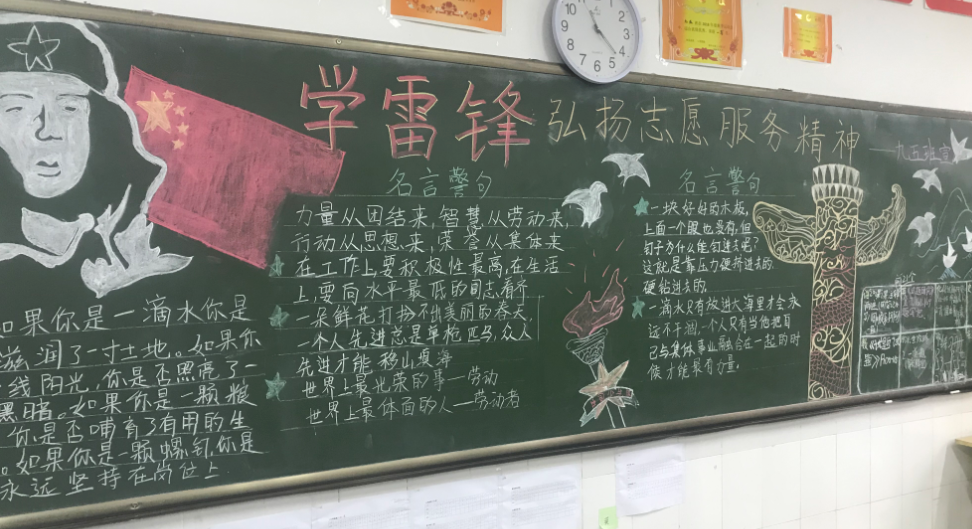 学雷锋 弘扬志愿服务精神
九五班宣
如果你是一滴水你是
滋润了一寸土地。如果你
线阳光,你是否照亮了一
黑暗。如果你是一颗粮
你是否哺育了有用的生
。如果你是一颗螺钉,你是
永远坚持在岗位上
名言警句
力量从团结来,智慧从劳动来,
行动从思想来,荣誉从集体来
在工作上,要积极性最高,在生活
上,要向水平最低的同志看齐
一朵鲜花打扮不出美丽的春天,
一个人先进总是单枪匹马,众人
先进才能移山填海
世界上最光荣的事—劳动
世界上最体面的人—劳动者
名言警句
一块好好的木板,
上面一个眼也没有,但
钉子为什么能钉进去呢?
这就是靠压力硬挤进去的.
硬钻进去的.
一滴水只有放进大海里才会永
远不干涸,一个人只有当他把自
己与集体事业融合在一起的时
候才能最有力量.
12
1
2
3
4
5
6
7
8
9
10
11